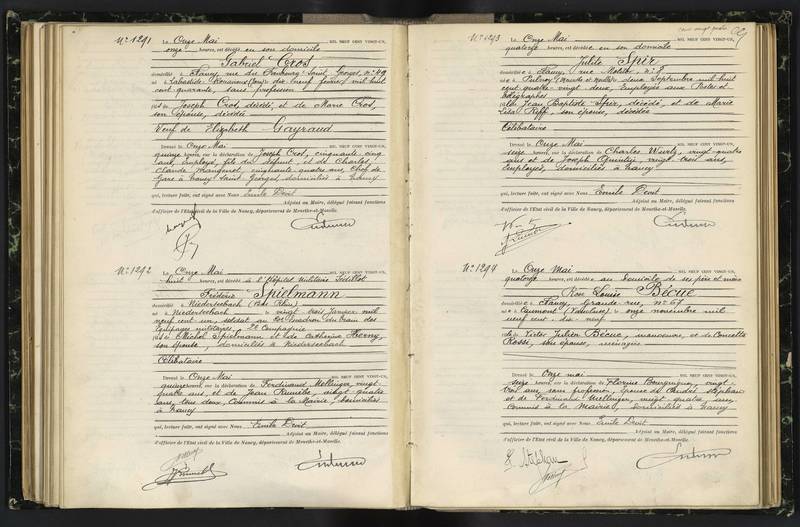 N° 1291 Le Onze Mai MIL NEUF CENT VINGT-UN,
onze heures, est décédé en son domicile
Gabriel Cros
domicilié à Nancy, rue du Faubourg Saint Georges, n° 49
né à Labastide le neuf février mil huit
cent quarante, sans profession
fils de Joseph Cros, décédé, et de Marie Cros,
son épouse, décédée
Veuf de Elizabeth Gayraud
Dressé le Onze Mai MIL NEUF CENT VINGT-UN,
quinze heures, sur la déclaration de Joseph Cros, cinquante cinq
ans, employé, fils du défunt, et de Charles
Claude Mangenot, cinquante quatre ans, Chef de
Gare à Nancy Saint Georges, domiciliés à Nancy
qui, lecture faite, ont signé avec Nous Emile Droit
Adjoint au Maire, délégué faisant fonctions
d'officier de l'Etat civil de la Ville de Nancy, département de Meurthe-et-Moselle.
N° 1292 Le Onze Mai MIL NEUF CENT VINGT-UN,
huit heures, est décédé à l'Hôpital Militaire Sédillot
Frédéric Spielmann
domicilié à Niederseebach (Bas Rhin)
né à Niederseebach le vingt trois Janvier mil
neuf cent un, soldat au Escadron du train des
Equipages militaires, 2e Compagnie
fils de Michel Spielmann et de Catherine
son épouse, domiciliés à Niederseebach
Célibataire
Dressé le Onze Mai MIL NEUF CENT VINGT-UN,
quinze heures, sur la déclaration de Ferdinand Mellinger, vingt
quatre ans, et de Jean Prunelle, vingt quatre
ans, tous deux, Commis à la Mairie, domiciliés
à Nancy
qui, lecture faite, ont signé avec Nous Emile Droit
Adjoint au Maire, délégué faisant fonctions
d'officier de l'Etat civil de la Ville de Nancy, département de Meurthe-et-Moselle.
N° 1293 Le Onze Mai MIL NEUF CENT VINGT-UN,
quatorze heures, est décédée en son domicile
Julie Spir
domiciliée à Nancy, rue Molitor, n°
née à Pulnoy (Meurthe et Moselle) le deux Septembre mil huit
cent quatre-vingt deux, Employée aux Postes et
Télégraphes
fille de Jean Baptiste Spir, décédé, et de Marie
son épouse, décédée
Célibataire
Dressé le Onze Mai MIL NEUF CENT VINGT-UN,
seize heures, sur la déclaration de Charles Wurtz, vingt-quatre
ans et de Joseph vingt trois ans,
Employés, domiciliés à Nancy
qui, lecture faite, ont signé avec Nous Emile Droit
Adjoint au Maire, délégué faisant fonctions
d'officier de l'Etat civil de la Ville de Nancy, département de Meurthe-et-Moselle.
N° 1294 Le Onze Mai MIL NEUF CENT VINGT-UN,
quatorze heures, est décédée au domicile de ses père et mère
Louise Bécue
domiciliée à Nancy, Grande rue, n° 67
née à Caumont (Vaucluse) le onze novembre mil
neuf cent dix-neuf
fille de Victor Julien Bécue, manoeuvre, et de Concetta
Rossi, son épouse, ménagère
Dressé le Onze mai MIL NEUF CENT VINGT-UN,
seize heures, sur la déclaration de Florine Bourguignon, vingt
trois ans, sans profession, épouse de André Stéphan
et de Ferdinand Mellinger, vingt quatre ans,
Commis à la Mairie, domiciliés à Nancy
qui, lecture faite, ont signé avec Nous Emile Droit
Adjoint au Maire, délégué faisant fonctions
d'officier de l'Etat civil de la Ville de Nancy, département de Meurthe-et-Moselle.
F. Stéphan